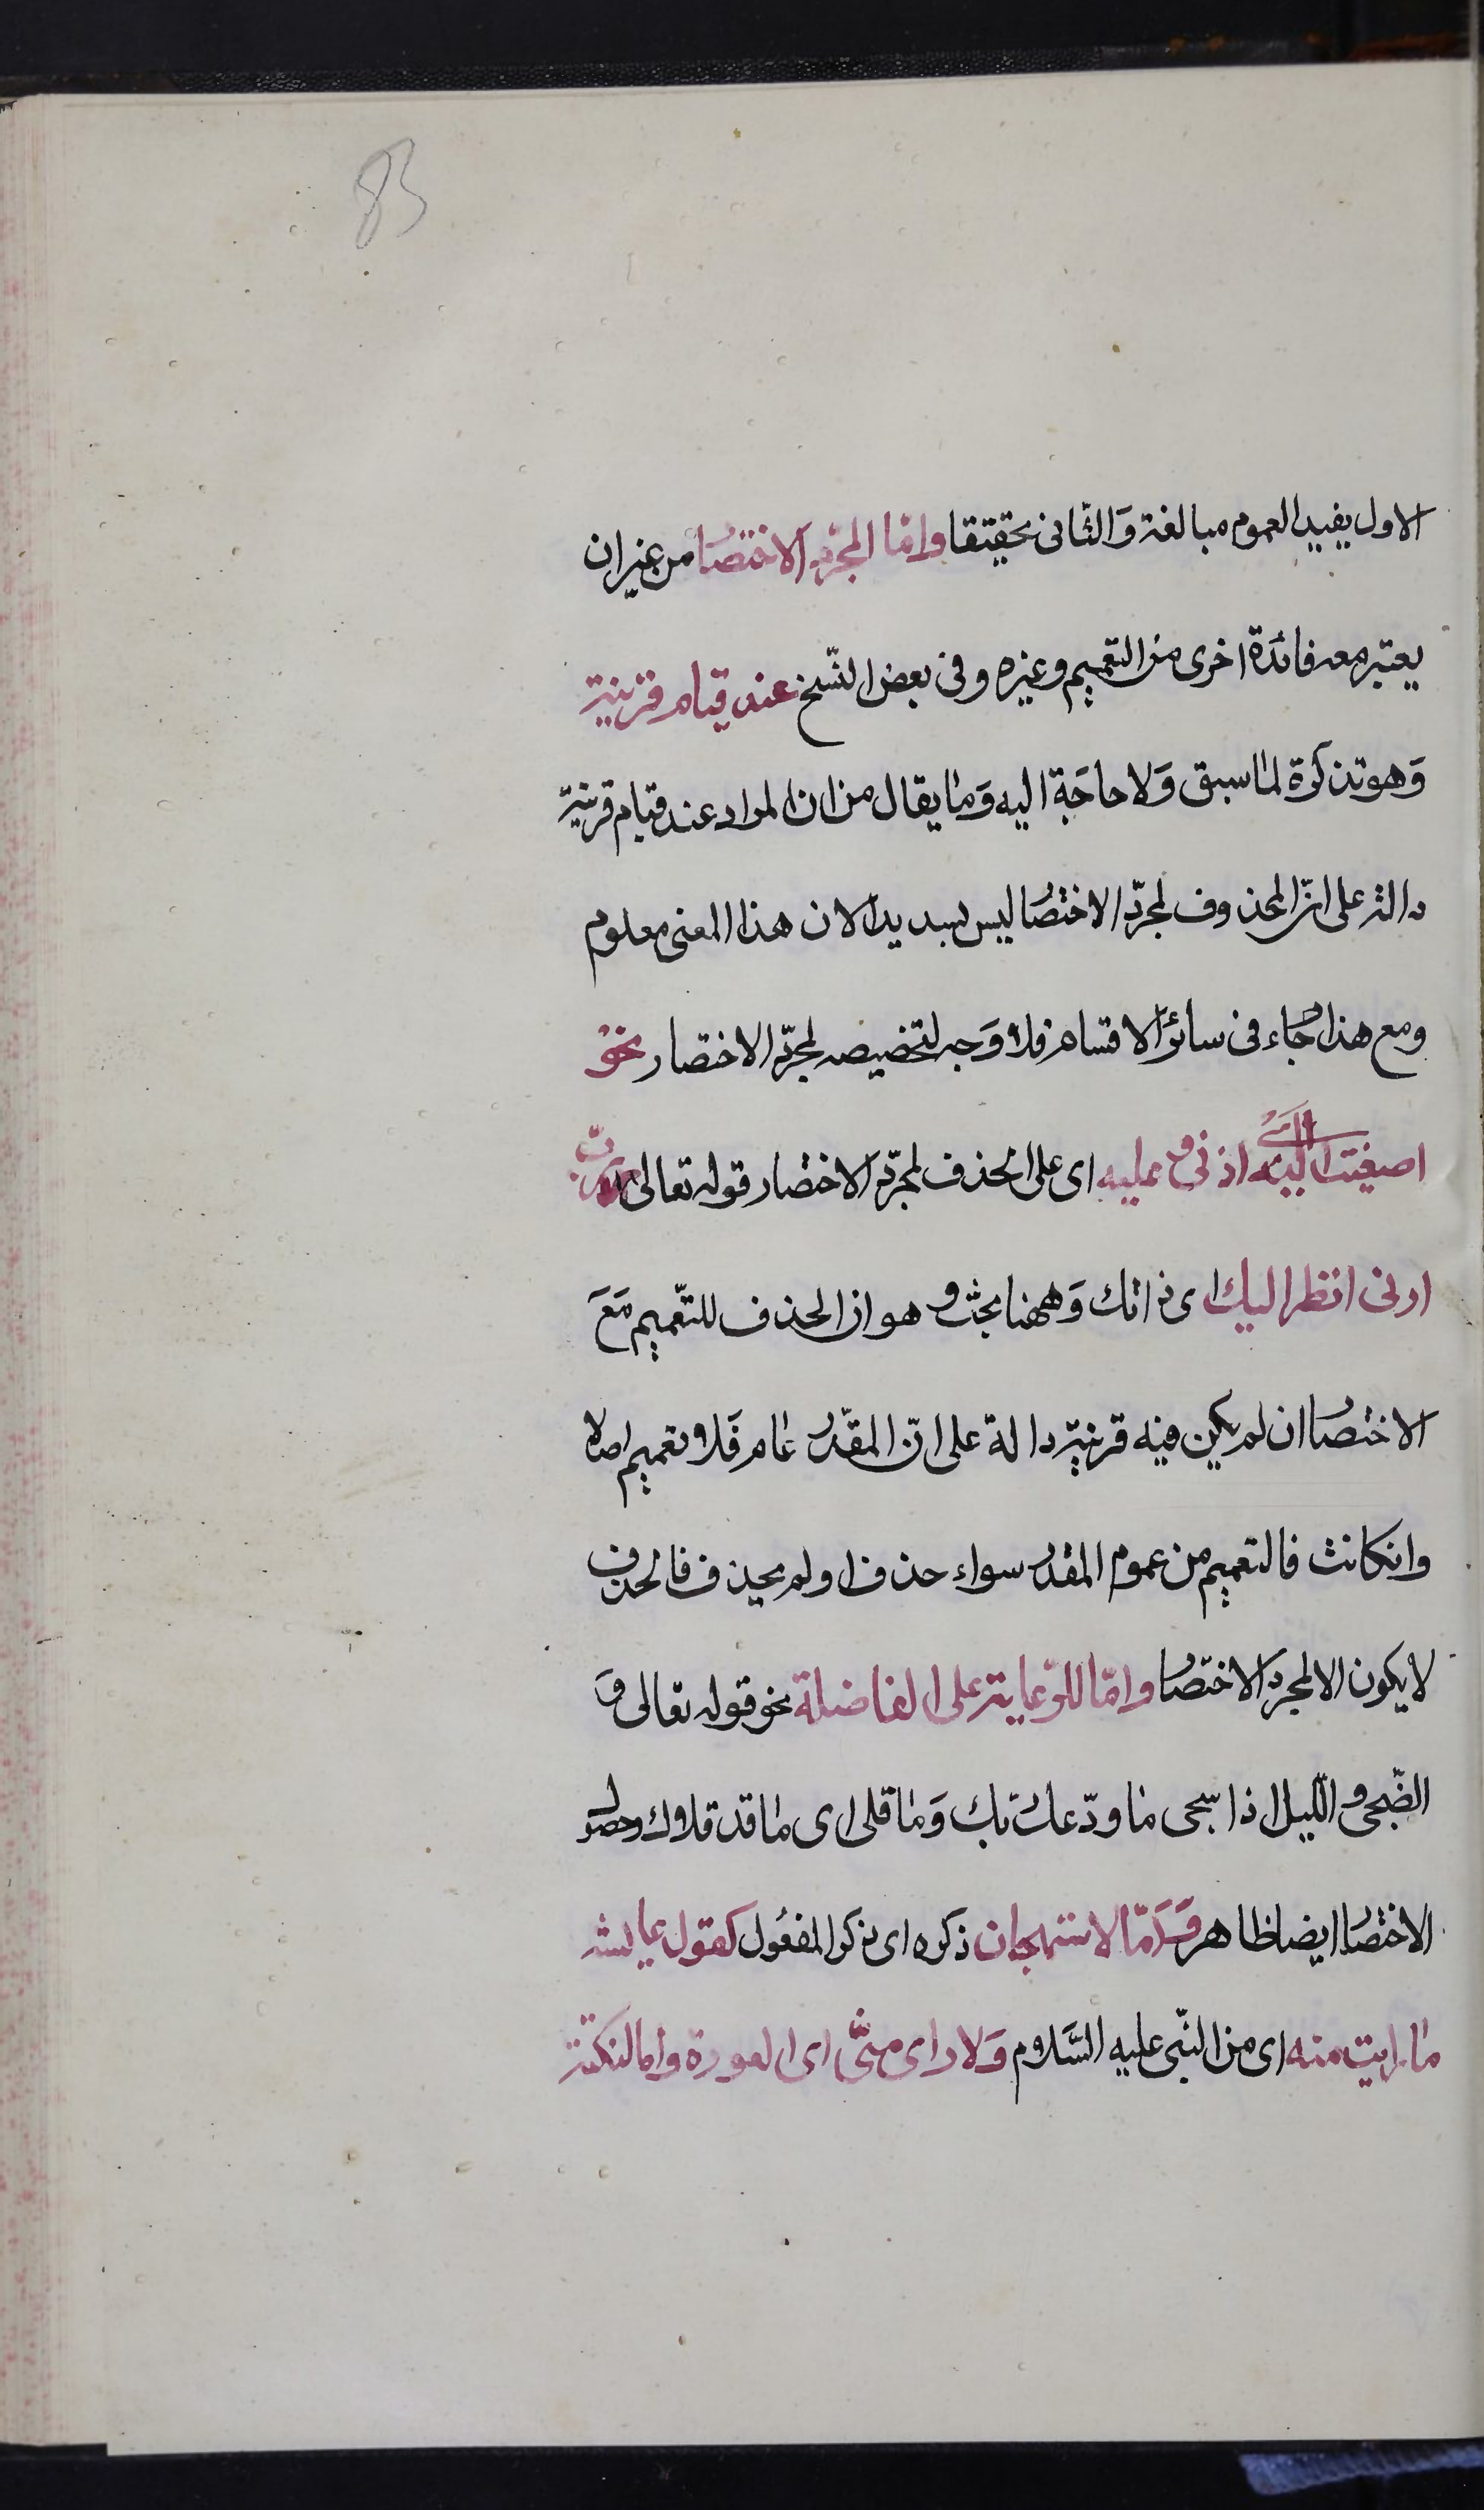 83
الاول يفيد العموم مبالغة وَالثّانى تحقيقا وامّا لمجرّد الاختصا من غير ان
يعتبر معه فائدة اخرى من التعميم وغيره وفى بعض النّسخ عند قيام قرينة
وَهو تذكرة لما سبق وَلا حاجَة اليه وَما يقال من ان المراد عند قيام قرينة
دالة على انّ المحذوف لمجرّد الاختصا ليس بسديد لان هذا المعنى معلوم
ومع هذا جاء فى سائر الاقسام فلا وَجه لتخصيصه لمجرّد الاختصار نحو
اصغيت اليه اذنى وعليه اى على الحذف لمجرّد الاختصار قوله تعالى ربّ
ارنى انظر اليك اى ذاتك وَههنا بحث وهو ان الحذف للتّعميم مَعَ
الاختصا ان لم يكن فيه قرينة دالة على انّ المقدّر عام فَلا تعميم اصلا
وانكانت فالتعميم من عموم المقدر سواء حذف او لم يحذف فالحذف
لا يكون الا لمجرد الاختصا وامّا للرّعاية على الفاضلة نحو قوله تعالى وَ
الضّحى والّليل اذا سجى ما ودّعك ربك وَما قلى اى ما قد قلاك وحصول
الاختصا ايضا ظاهر وَامّا لاستهجان ذكره اى ذكر المفعُول كقول عايشه
ما رايت منه اى من النّبى عليه السَّلام وَلا راى منّى اى العورة واما لنكتة